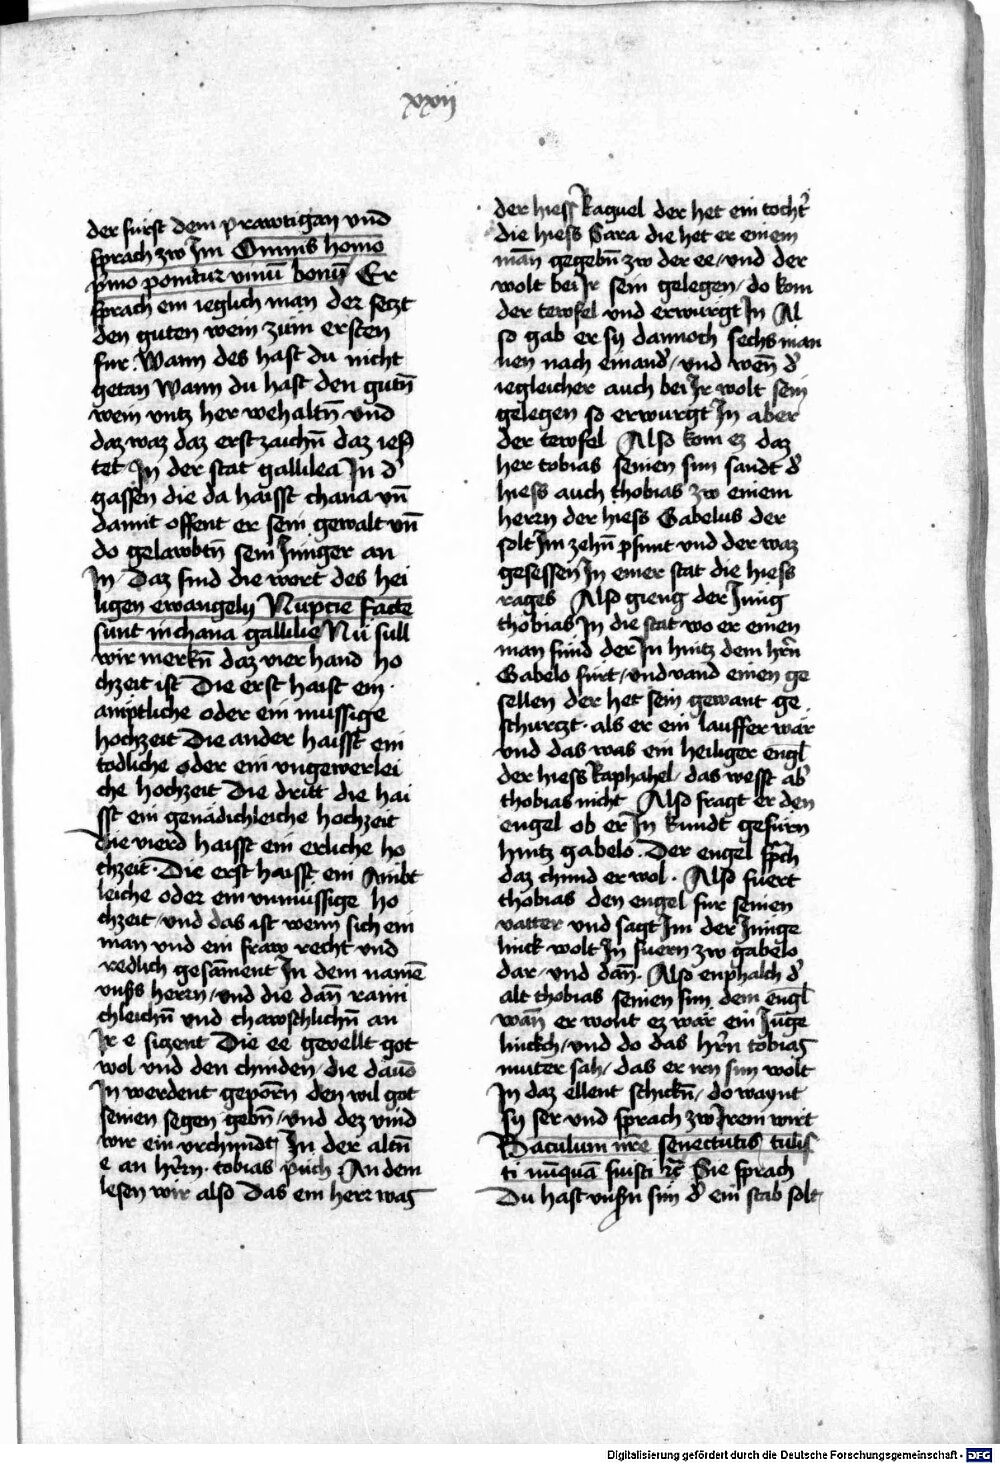 xxij
der furst dem prawtigan vnd
sprach zw Im Omnis homo
pͥmo ponitur vinū bonū Er
sprach ein ieglich man der seczt
den guten wein zuin ersten
fur. Wann des hast du nicht
getan Wann du hast den gutn̄
wein vntz her wehaltn̄ vnd
daz waz daz erst zaichn̄ daz iesꝰ
tet In der stat gallilea In dʼ
gassen die da haisst chana vn̄
damit offent er sein gewalt vn̄
do gelawbtn̄ sein Iunger an
In / Daz sind die wort des hei
ligen ewangelij Nupcie facte
sunt in chana gallilie Nu sull
wir merkn̄ daz vier hand ho
chzeit ist Die erst haist ein
amptliche oder ein mussige
hochzeit Die ander haisst ein
todliche oder ein vngewerlei
che hochzeit Die dritt die hai
sst ein genadichleiche hochzeit
Die vierd haisst ein erliche ho
chzeit · Die erst haisst ein Ambt
leiche oder ein vnmussige ho
chzeit / vnd das ist wenn sich ein
man vnd ein fraw recht vnd
redlich gesāment In dem namē
vnsʼs herrn / vnd die dān raini
chleichn̄ vnd chawschlichn̄ an
Ir e siczent Die ee gevellt got
wol vnd den chinden / die dauō
In werdent geporn̄ den wil got
seinen segen gebn̄ / vnd dez vind
wir ein vrchundt / In der altn̄
e an hʼrn · tobias puch · An dem
lesen wir also Das ein herr waz
der hiess Raguel der het ein tochtʼ
die hiess Sara die het er einem
man̄ gegebn̄ zw der ee / vnd der
wolt bei Ir sein gelegen / do kom
der tewfel vnd erwurgt In Al
so gab er sy dannoch sechs man
nen nach einandʼ / vnd wen̄ dʼ
iegleicher auch bei Ir wolt sein
gelegen so erwurgt In aber
der tewfel Also kom ez daz
her tobias seinen sun sandt dʼ
hiess auch thobias zw einem
herrn der hiess Gabelus der
solt Im zehn̄ pfunt vnd der waz
gesessen In einer stat die hiess
rages Also gieng der Iung
thobias In die stat wo er einen
man fund der In hintz dem hʼrn
Gabelo fürt / vnd vand einen ge
sellen der het sein gewant ge
schurczt · als er ein lauffer wär
vnd das was ein heiliger engl
der hiess Raphahel / das wesst abʼ
thobias nicht Also fragt er den
engel ob er In kundt gefurn
hintz gabelo · Der engel spͣch
daz chund er wol · Also fuert
thobias den engel fur seinen
vatter vnd sagt Im der Iunge
linck wolt In fuern zw gabelo
dar / vnd dan̄ · Also enphalch dʼ
alt thobias seinen sun dem engl
wān er wont ez wär ein Iūge
linckch / vnd do das hʼrn tobias
muter sah / das er irn sun wolt
In daz ellent schickn̄ / do waynt
sy ser vnd sprach zw Irem wirt
Baculum nr̄e senectutis tulis
ti nūquā fuisti rc̄ Sie sprach
Du hast vnsʼn sun dʼ ein stab solt
Digitalisierung gefördert durch die Deutsche Forschungsgemeinschaft - DFG